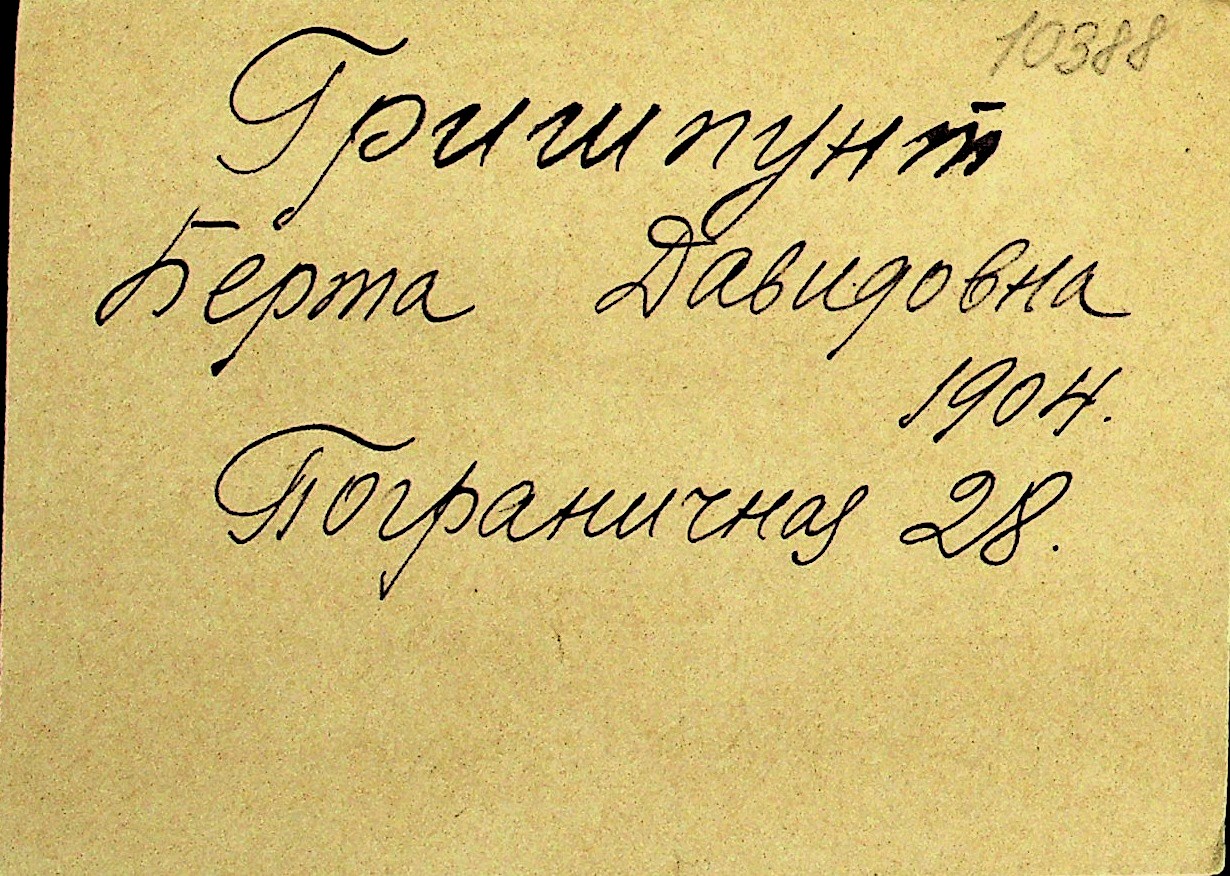 10388
Гришпунт
Берта Давидовна
1904.
Пограничная 28.